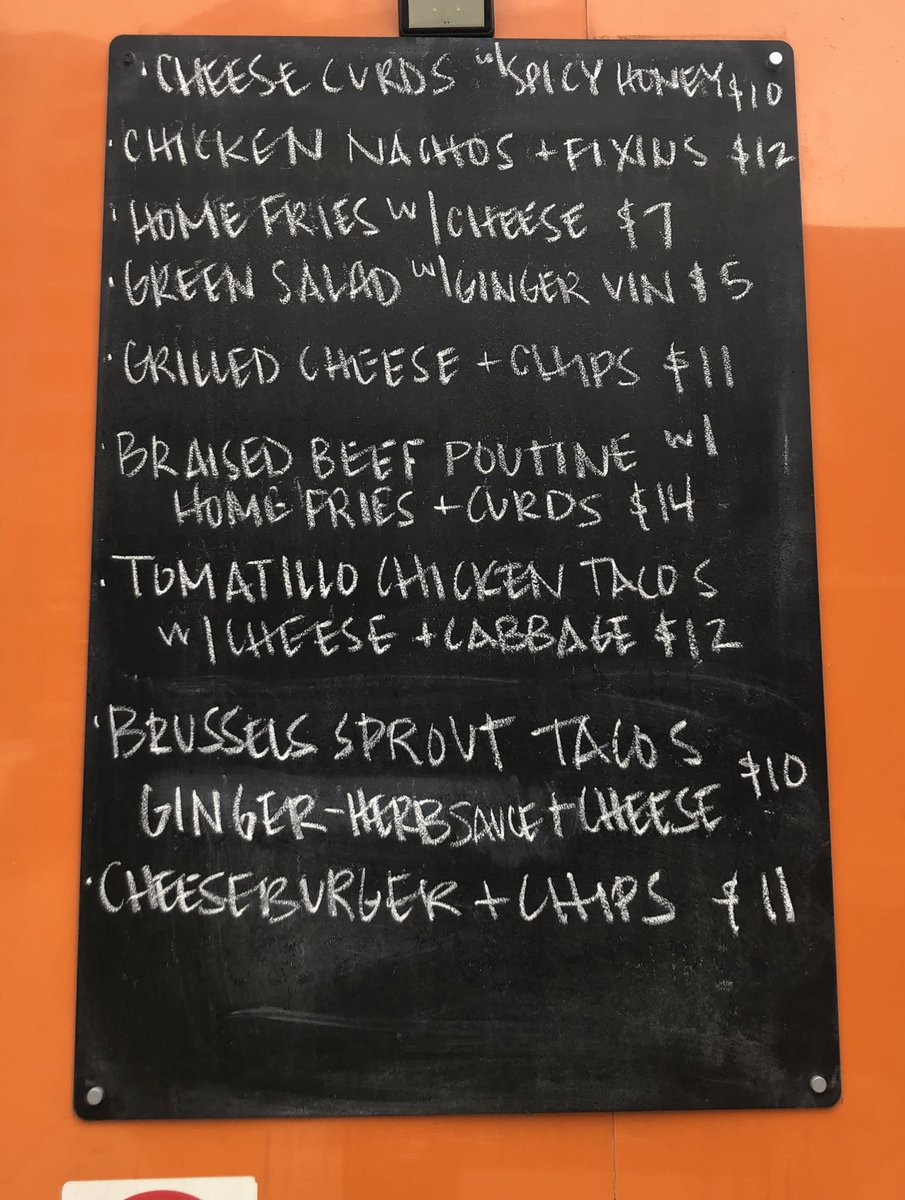 · CHEESE CURDS w/ SPICY HONEY $10
· CHICKEN NACHOS + FIXINS $12
· HOME FRIES w/ CHEESE $7
· GREEN SALAD w/ GINGER VIN $5
· GRILLED CHEESE + CHIPS $11
· BRAISED BEEF POUTINE w/
HOME FRIES + CURDS $14
· TOMATILLO CHICKEN TACOS
w/ CHEESE + CABBAGE $12
· BRUSSELS SPROUT TACOS
GINGER-HERB SAUCE + CHEESE $10
· CHEESEBURGER + CHIPS $11